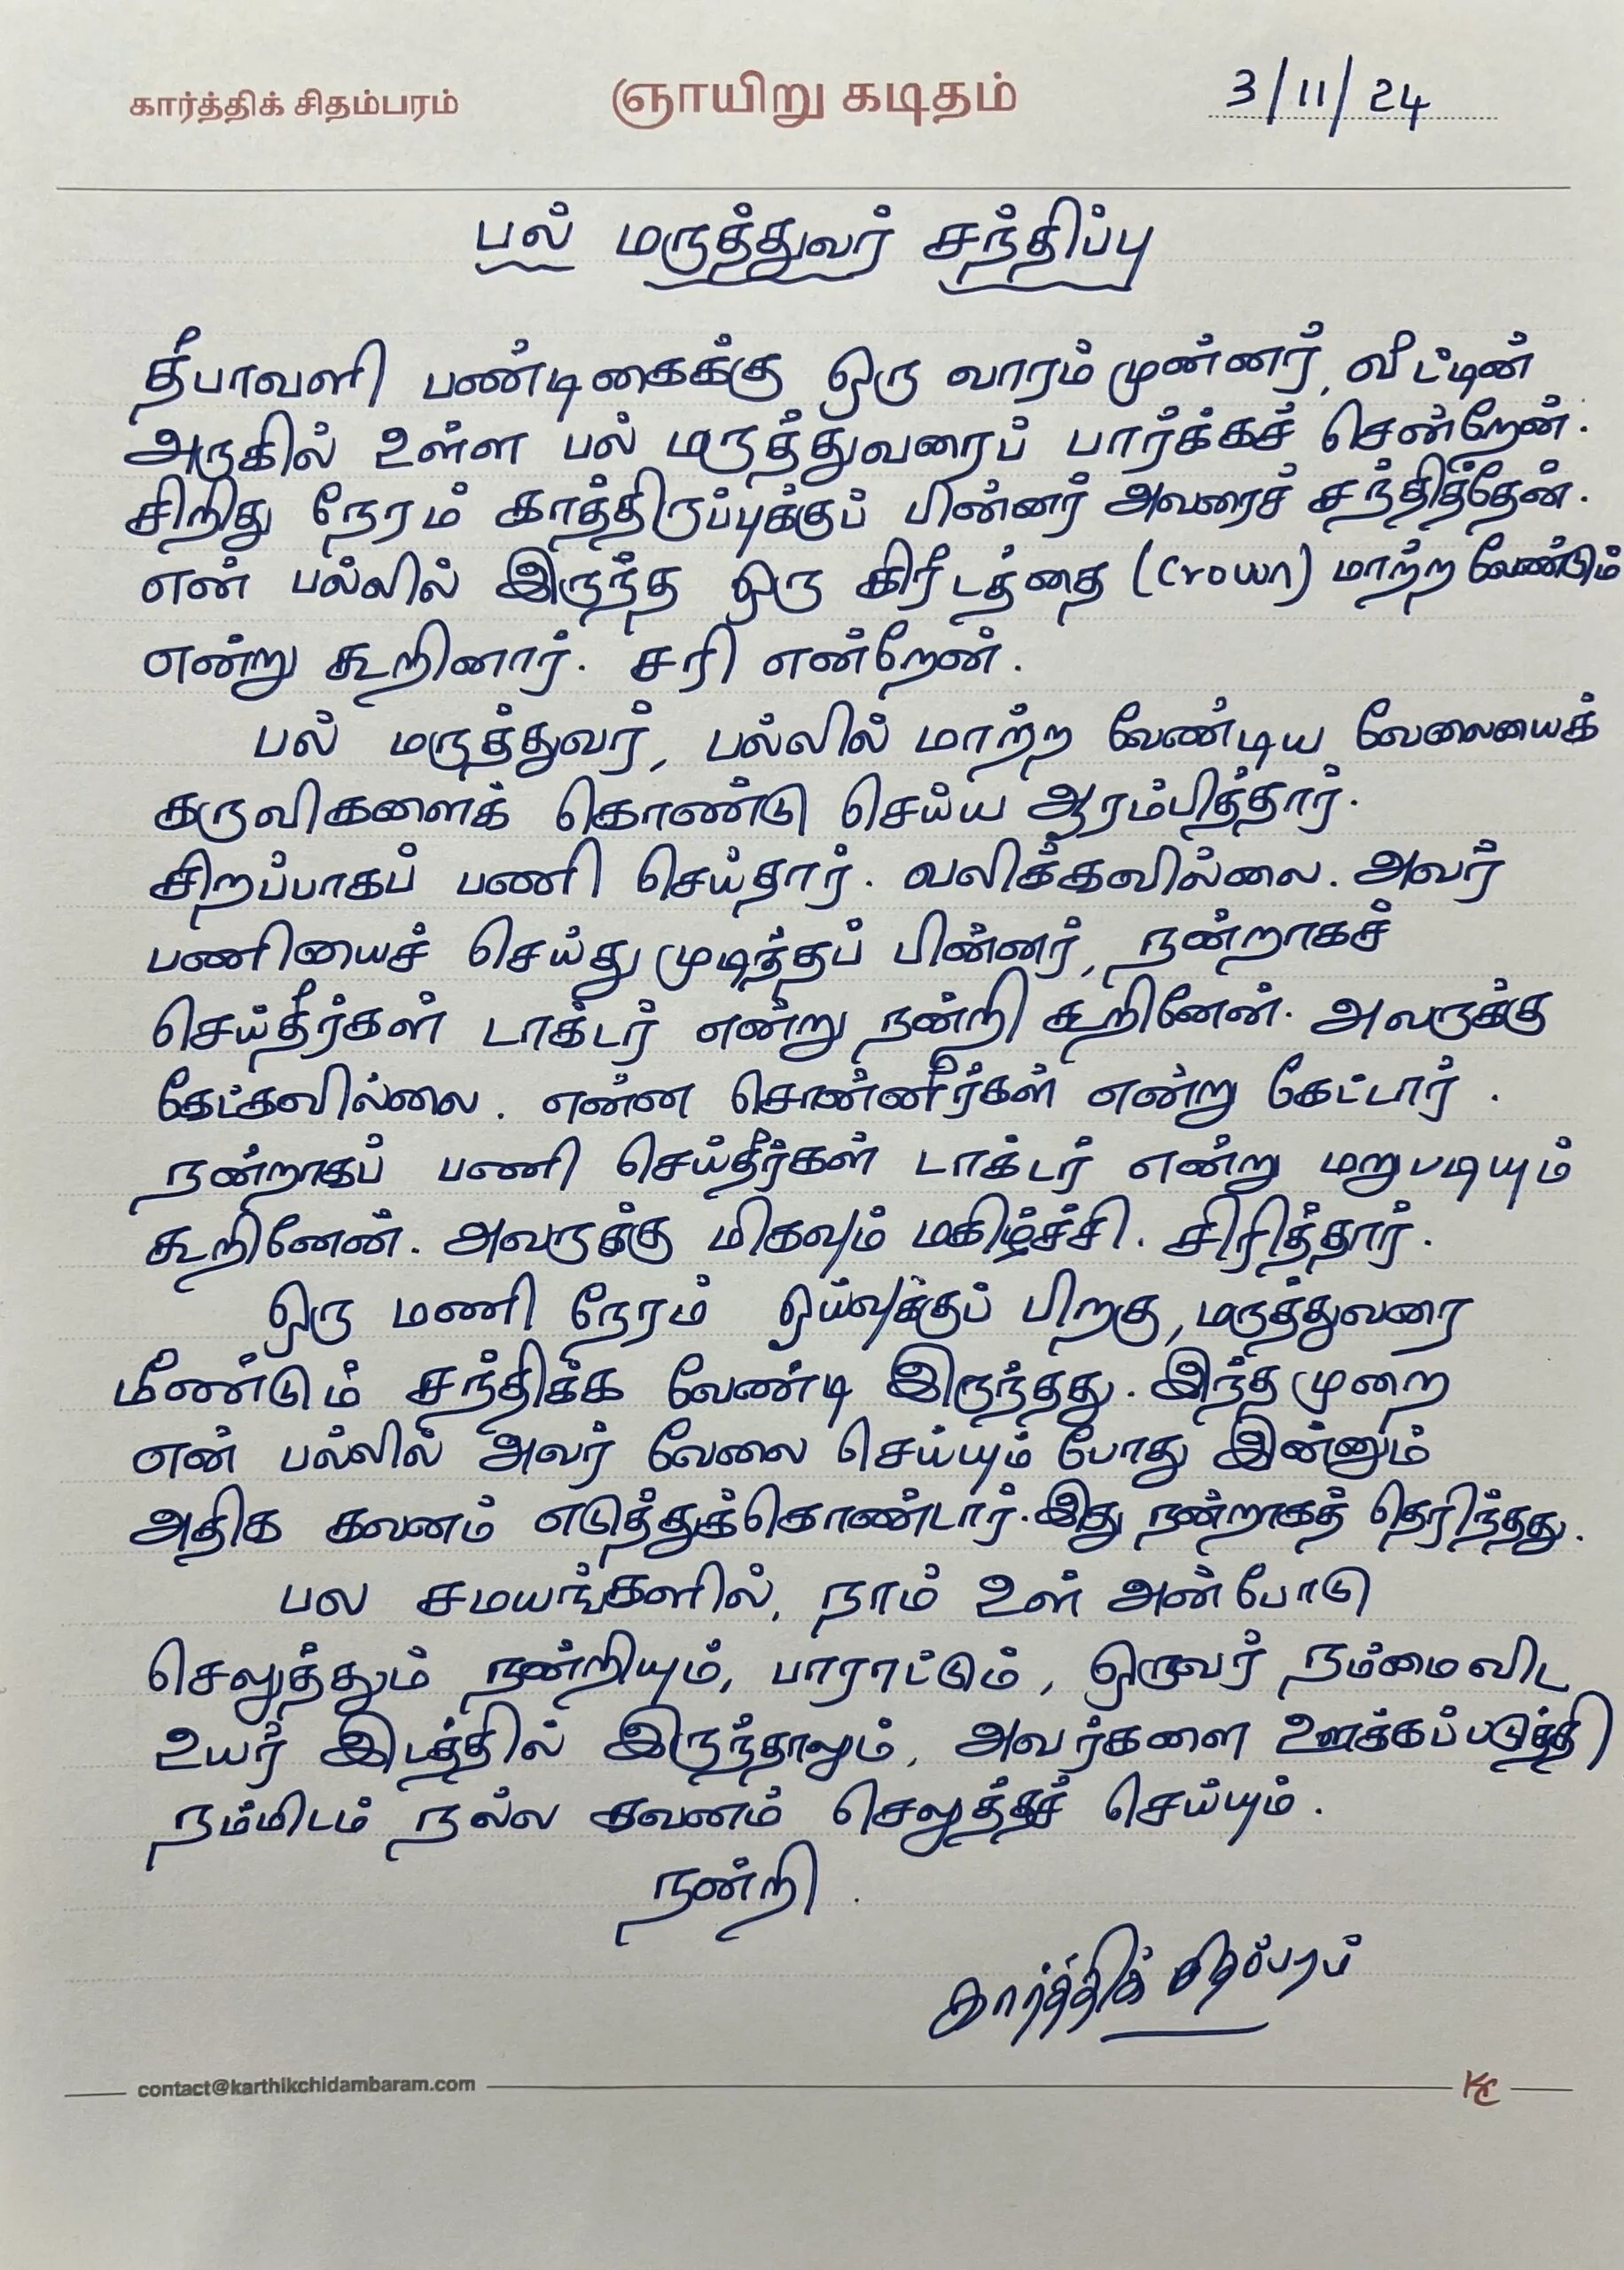 கார்த்திக் சிதம்பரம்
ஞாயிறு கடிதம்
3/11/24
பல் மருத்துவர் சந்திப்பு
தீபாவளி பண்டிகைக்கு ஒரு வாரம் முன்னர், வீட்டின்
அருகில் உள்ள பல் மருத்துவரைப் பார்க்கச் சென்றேன்.
சிறிது நேரம் காத்திருப்புக்குப் பின்னர் அவரைச் சந்தித்தேன்.
என் பல்லில் இருந்த ஒரு கிரீடத்தை (Crown) மாற்ற வேண்டும்
என்று கூறினார். சரி என்றேன்.
பல் மருத்துவர், பல்லில் மாற்ற வேண்டிய வேலையைக்
கருவிகளைக் கொண்டு செய்ய ஆரம்பித்தார்.
சிறப்பாகப் பணி செய்தார். வலிக்கவில்லை. அவர்
பணியைச் செய்து முடித்தப் பின்னர், நன்றாகச்
செய்தீர்கள் டாக்டர் என்று நன்றி கூறினேன். அவருக்கு
கேட்கவில்லை. என்ன சொன்னீர்கள் என்று கேட்டார்.
நன்றாகப் பணி செய்தீர்கள் டாக்டர் என்று மறுபடியும்
கூறினேன். அவருக்கு மிகவும் மகிழ்ச்சி. சிரித்தார்.
ஒரு மணி நேரம் ஓய்வுக்குப் பிறகு, மருத்துவரை
மீண்டும் சந்திக்க வேண்டி இருந்தது. இந்த முறை
என் பல்லில் அவர் வேலை செய்யும் போது இன்னும்
அதிக கவனம் எடுத்துக்கொண்டார். இது நன்றாகத் தெரிந்தது.
பல சமயங்களில், நாம் உள் அன்போடு
செலுத்தும் நன்றியும், பாராட்டும், ஒருவர் நம்மை விட
உயர் இடத்தில் இருந்தாலும், அவர்களை ஊக்கப்படுத்தி
நம்மிடம் நல்ல கவனம் செலுத்தச் செய்யும்.
நன்றி.
கார்த்திக் சிதம்பரம்
contact@karthikchidambaram.com
KC